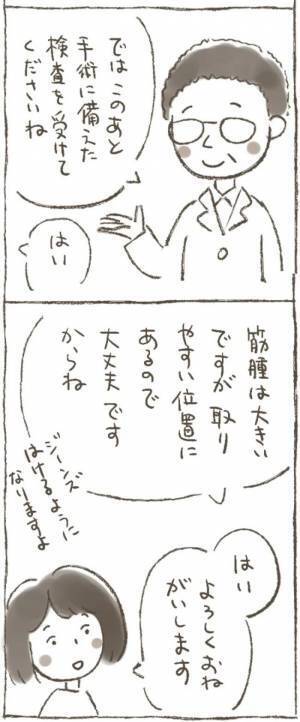 では このあと
手術に備えた
検査を受けて
くださいね
はい
筋腫は大きい
ですが 取り
やすい位置に
あるので
大丈夫です
からね
ジーンズ
はけるように
なりますよ
はい
よろしくおね
がいします